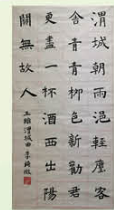 渭城朝雨浥輕塵客
舍青青柳色新勸君
更盡一杯酒西出陽
關無故人
王維渭城曲 李